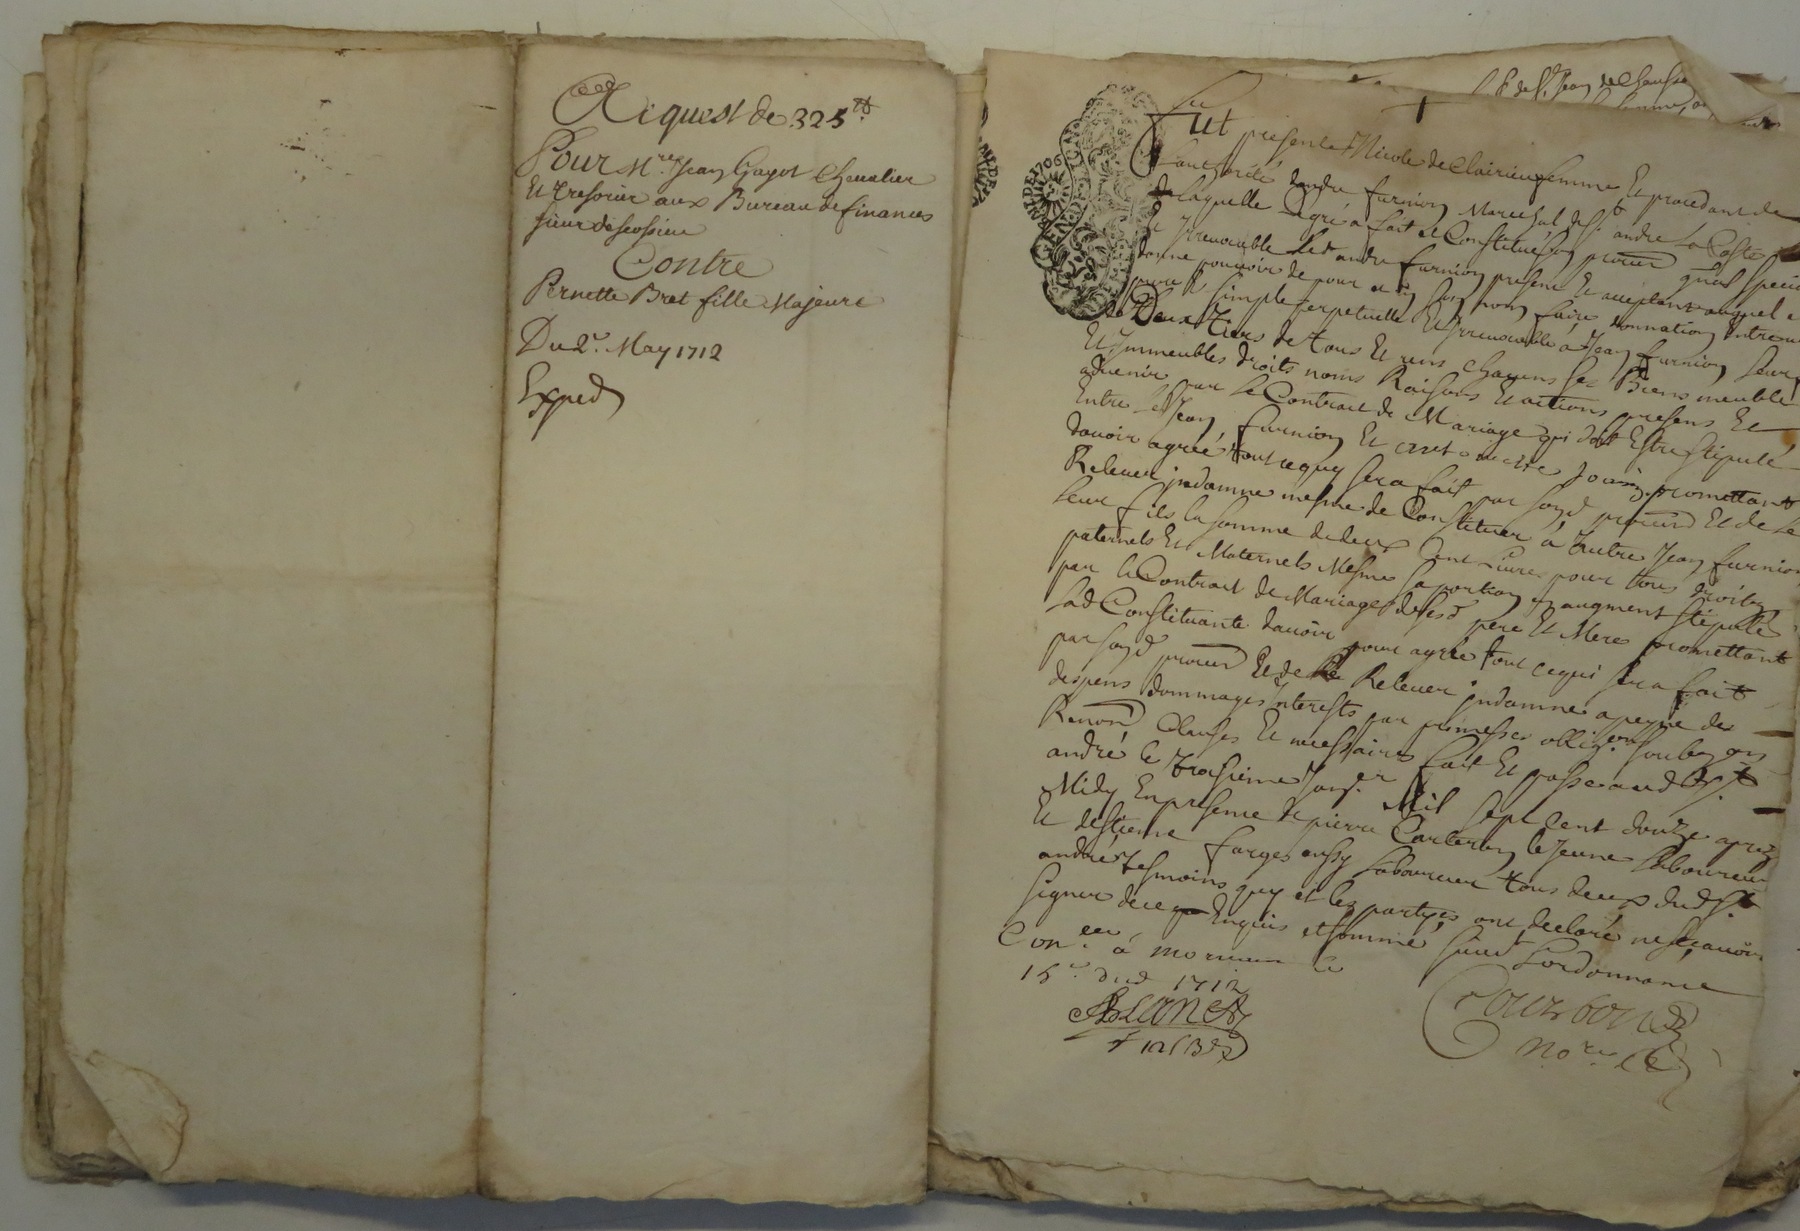 Acquest de 325 ₶.
Pour Mre Jean Gayot Chevalier
Et Tresorier aux Bureau de finances
sieur
Contre
Pernette Bret fille Majeure
Du 2e. May 1712
Exped
Fut presente Nicole de Clairieu femme Et procedant de
Lauthorité dandre furnion Mareschal de St. andre La Coste
de laquelle a fait et Constitué son procur special
Et Irrevocable led andre furnion present Et acceptant auquel
donne pouvoir de pour et en son nom faire donnation Entre
pure Et simple perpetuelle Et Irrevocable a Jean furnion leur
de Deux Tiers de tous Et uns chacuns ses Biens meubles
Et Immeubles droits noms Raisons Et actions presens Et
advenir par Le Contract de Mariage qui doit Estre stipulé
Entre led Jean furnion Et promettant
davoir agreé tout ce quy sera fait par sond procur Et de Le
Relever indamne mesme de Constituer à autre Jean furnion
leur fils la somme de deux Cent Livres pour tous droits
paternels Et Maternels Mesme sa portion augment stipullé
par le Contract de Mariage de sesd pere Et Mere promettant
lad Constituante davoir pour agreé tout ce qui sera fait
par sond procur Et de Le Relever indamne a peyne de
despens dommages Interests par promesses
Renon Clauses Et necessaires fait Et passé aud St.
andré le troisieme Mil sept Cent douze apres
Midy En presence de pierre Carteron le Jeune Laboureur
Et destienne farges aussy Laboureur tous deux dud St.
andré tesmoins quy et les partyes ont declaré ne scavoir
signer de ce Enquis et sommé suiv Lordonnance
Con. a mornan le
15e. dud 1712
Blanc
Pourbon
nore